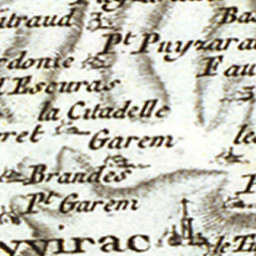 Bas
itraud
Pt. Puyzarat
rdonie
Fau
Escuras
la Citadelle
ret
Garem
le
Brandes
Pt. Garem
yvirac
le